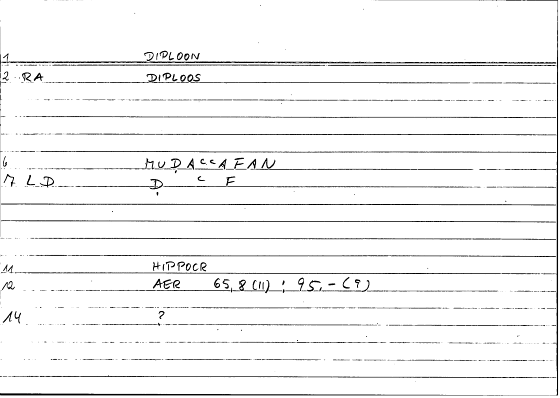 1 DIPLOON
2 RA DIPLOOS
6 MUḌAʿʿAFAN
7 LD Ḍ ʿ F
11 HIPPOCR
12 AER 65,8 (11) ; 95,- (?)
14 ?